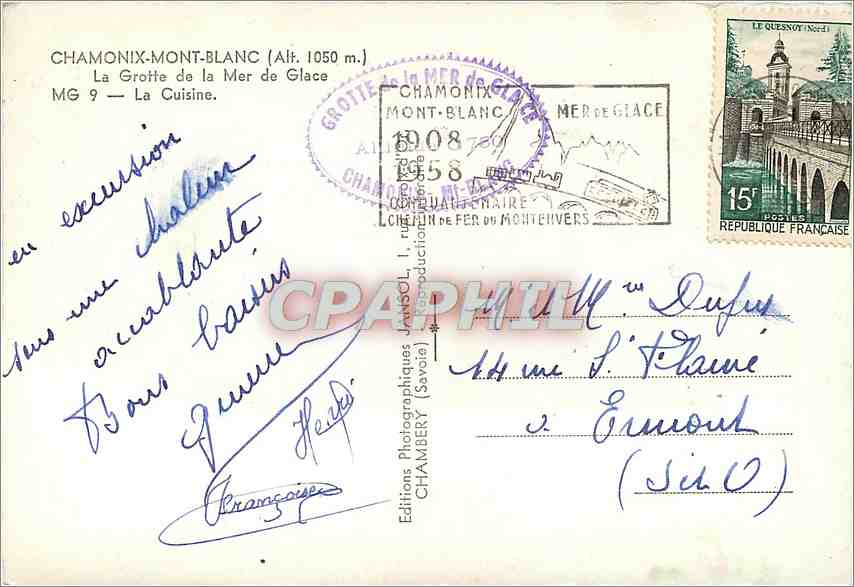 CHAMONIX-MONT-BLANC (Alt. 1050 m.)
La Grotte de la Mer de Glace
MG 9 — La Cuisine.
en excursion
sous une chaleur
accablante
Bons baisers
Hervé
Françoise
Editions Photographiques JANSOL, 1, rue
CHAMBERY (Savoie) - Reproduction
GROTTE de la MER de GLACE
CHAMONIX Mt-BLANC
CHAMONIX
MONT-BLANC
MER DE GLACE
1908
1958
CINQUANTENAIRE
CHEMIN DE FER DU MONTENVERS
LE QUESNOY (Nord)
15F
POSTES
REPUBLIQUE FRANÇAISE
CPAPHIL
M et Mme Dufus
14 rue St Flaive
à Ermont
(S et O)